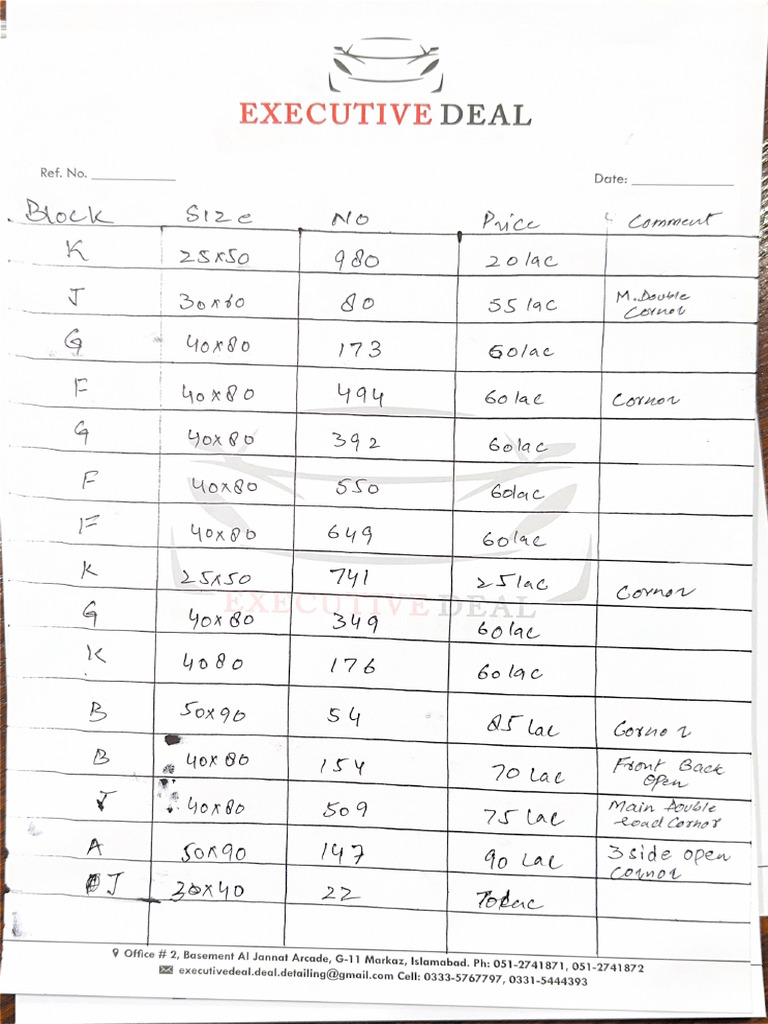 EXECUTIVE DEAL
Ref. No. Date:
Block Size No Price Comment
K 25x50 980 20 lac
J 30x60 80 55 lac M. Double Cornor
G 40x80 173 60 lac
F 40x80 494 60 lac Cornor
G 40x80 392 60 lac
F 40x80 550 60 lac
F 40x80 649 60 lac
K 25x50 741 25 lac Cornor
EXECUTIVE DEAL
G 40x80 349 60 lac
K 4080 176 60 lac
B 50x90 54 85 lac Cornor
B 40x80 154 70 Lac Front Back Open
J 40x80 509 75 Lac Main Double Road Cornor
A 50x90 147 90 Lac 3 side open Cornor
J 40 22 lac
Office # 2, Basement Al Jannat Arcade, G-11 Markaz, Islamabad. Ph: 051-2741871, 051-2741872
executivedeal.deal.detailing@gmail.com Cell: 0333-5767797, 0331-5444393